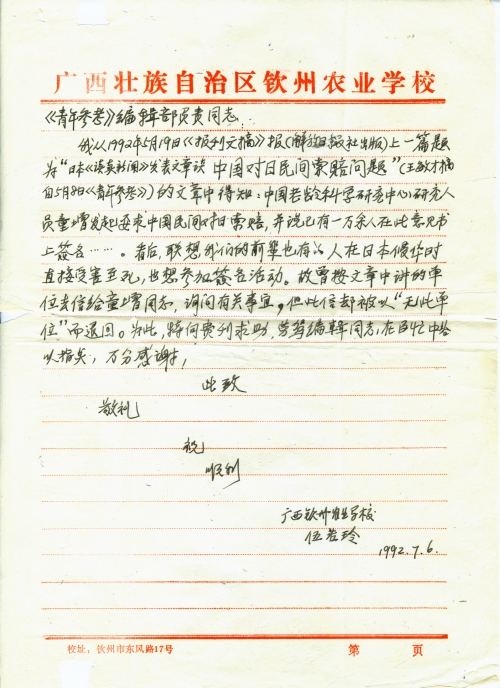 广西壮族自治区钦州农业学校
《青年参考》编辑部负责同志：
我从1992年5月19日《报刊文摘》报(解放日报社出版)上一篇题
为“日本《读卖新闻》发表文章谈 中国对日民间索赔问题”(王敏才摘
自5月8日《青年参考》)的文章中得知：中国老龄科学研究中心研究人
员童增发起要求中国民间对日索赔，并说已有一万余人在此意见书
上签名……。看后，联想我们的前辈也有的人在日本侵华时
直接受害至死，也想参加签名活动。故曾按文章中讲的单
位去信给童增同志，询问有关事宜，但此信却被以“无此单
位”而退回。为此，特向贵刊求助，劳驾编辑同志在百忙中给
以指点，万分感谢！
此致
敬礼
祝
顺利
广西钦州农业学校
伍若玲
1992.7.6.
校址：钦州市东风路17号 第 页